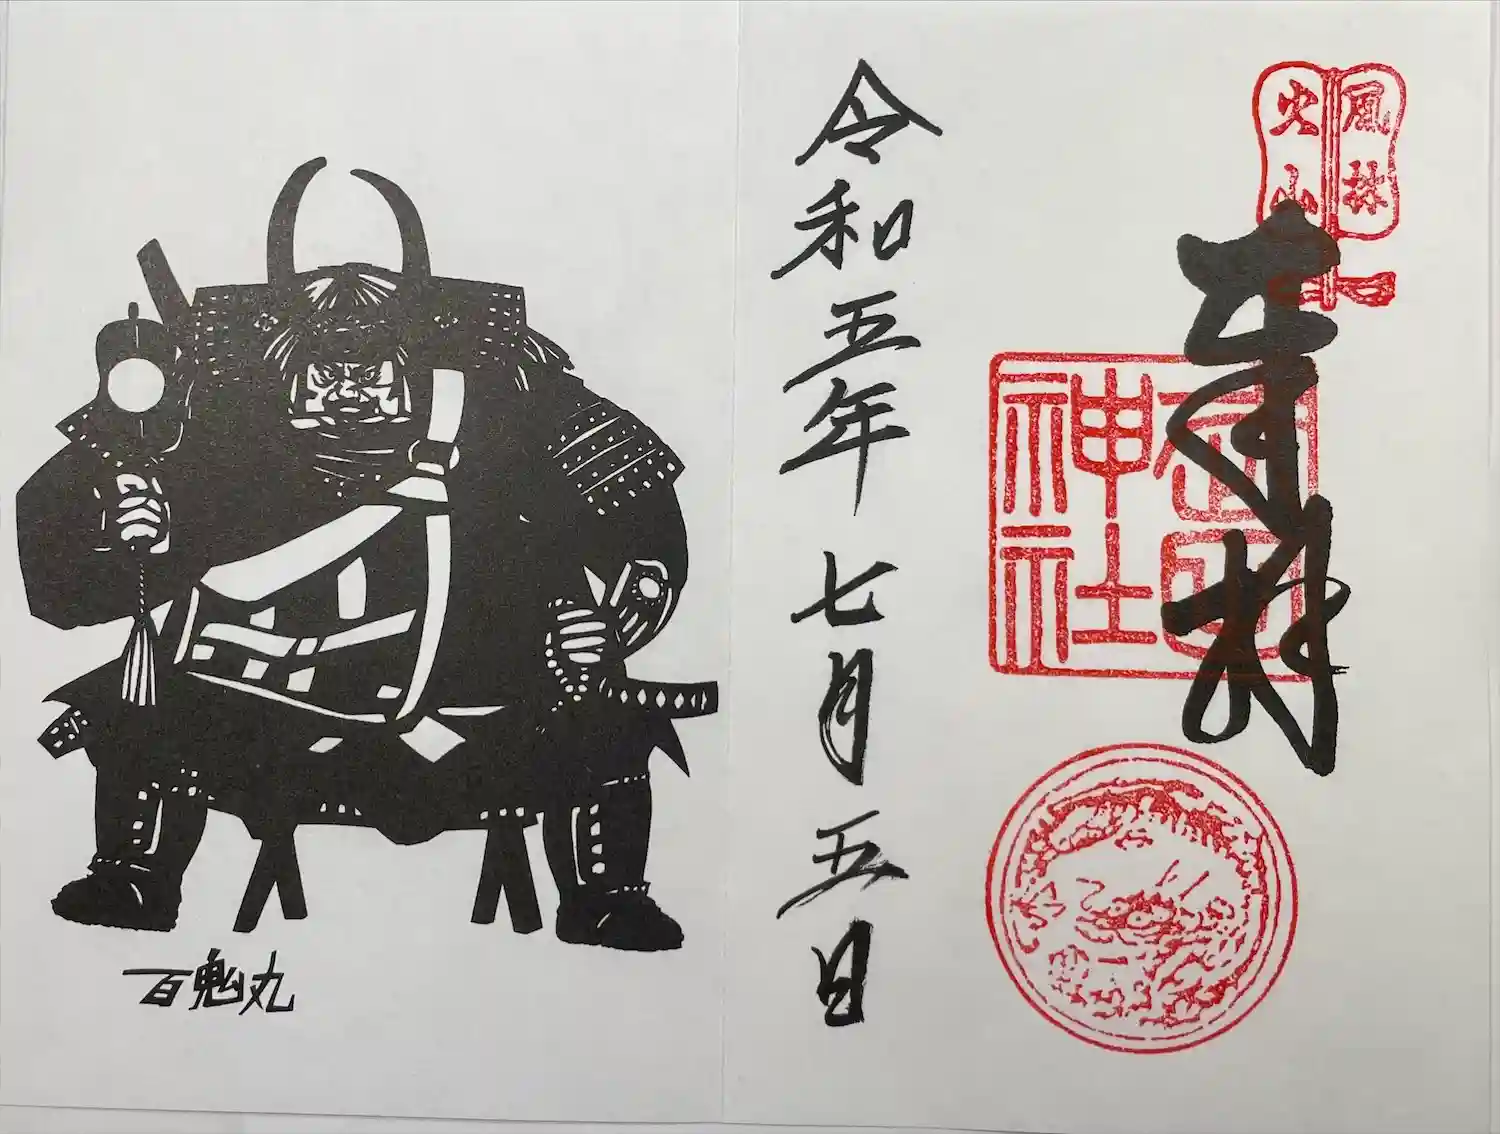 風林
火山
奉拝
武田
神社
令和五年 七月 五日
百鬼丸